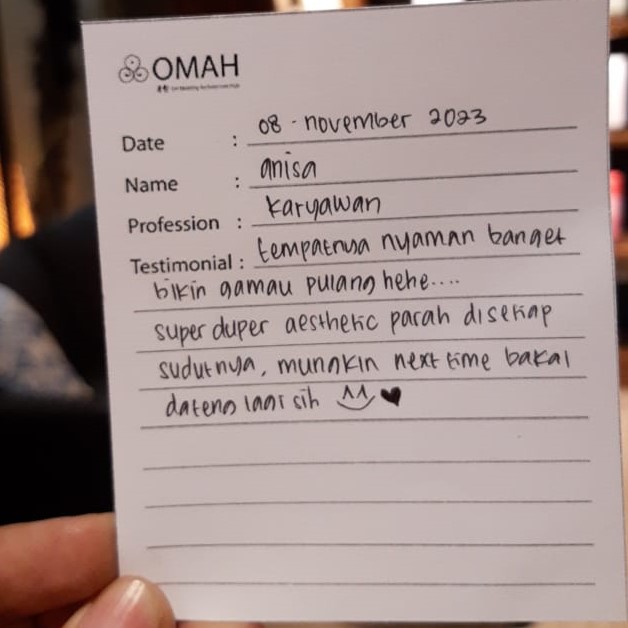 OMAH
Date : 08 - november 2023
Name : anisa
Profession : Karyawan
Testimonial : tempatnya nyaman banget
bikin gamau pulang hehe....
super duper aesthetic parah disetiap
sudutnya, mungkin next time bakal
dateng lagi sih ^^ ♥